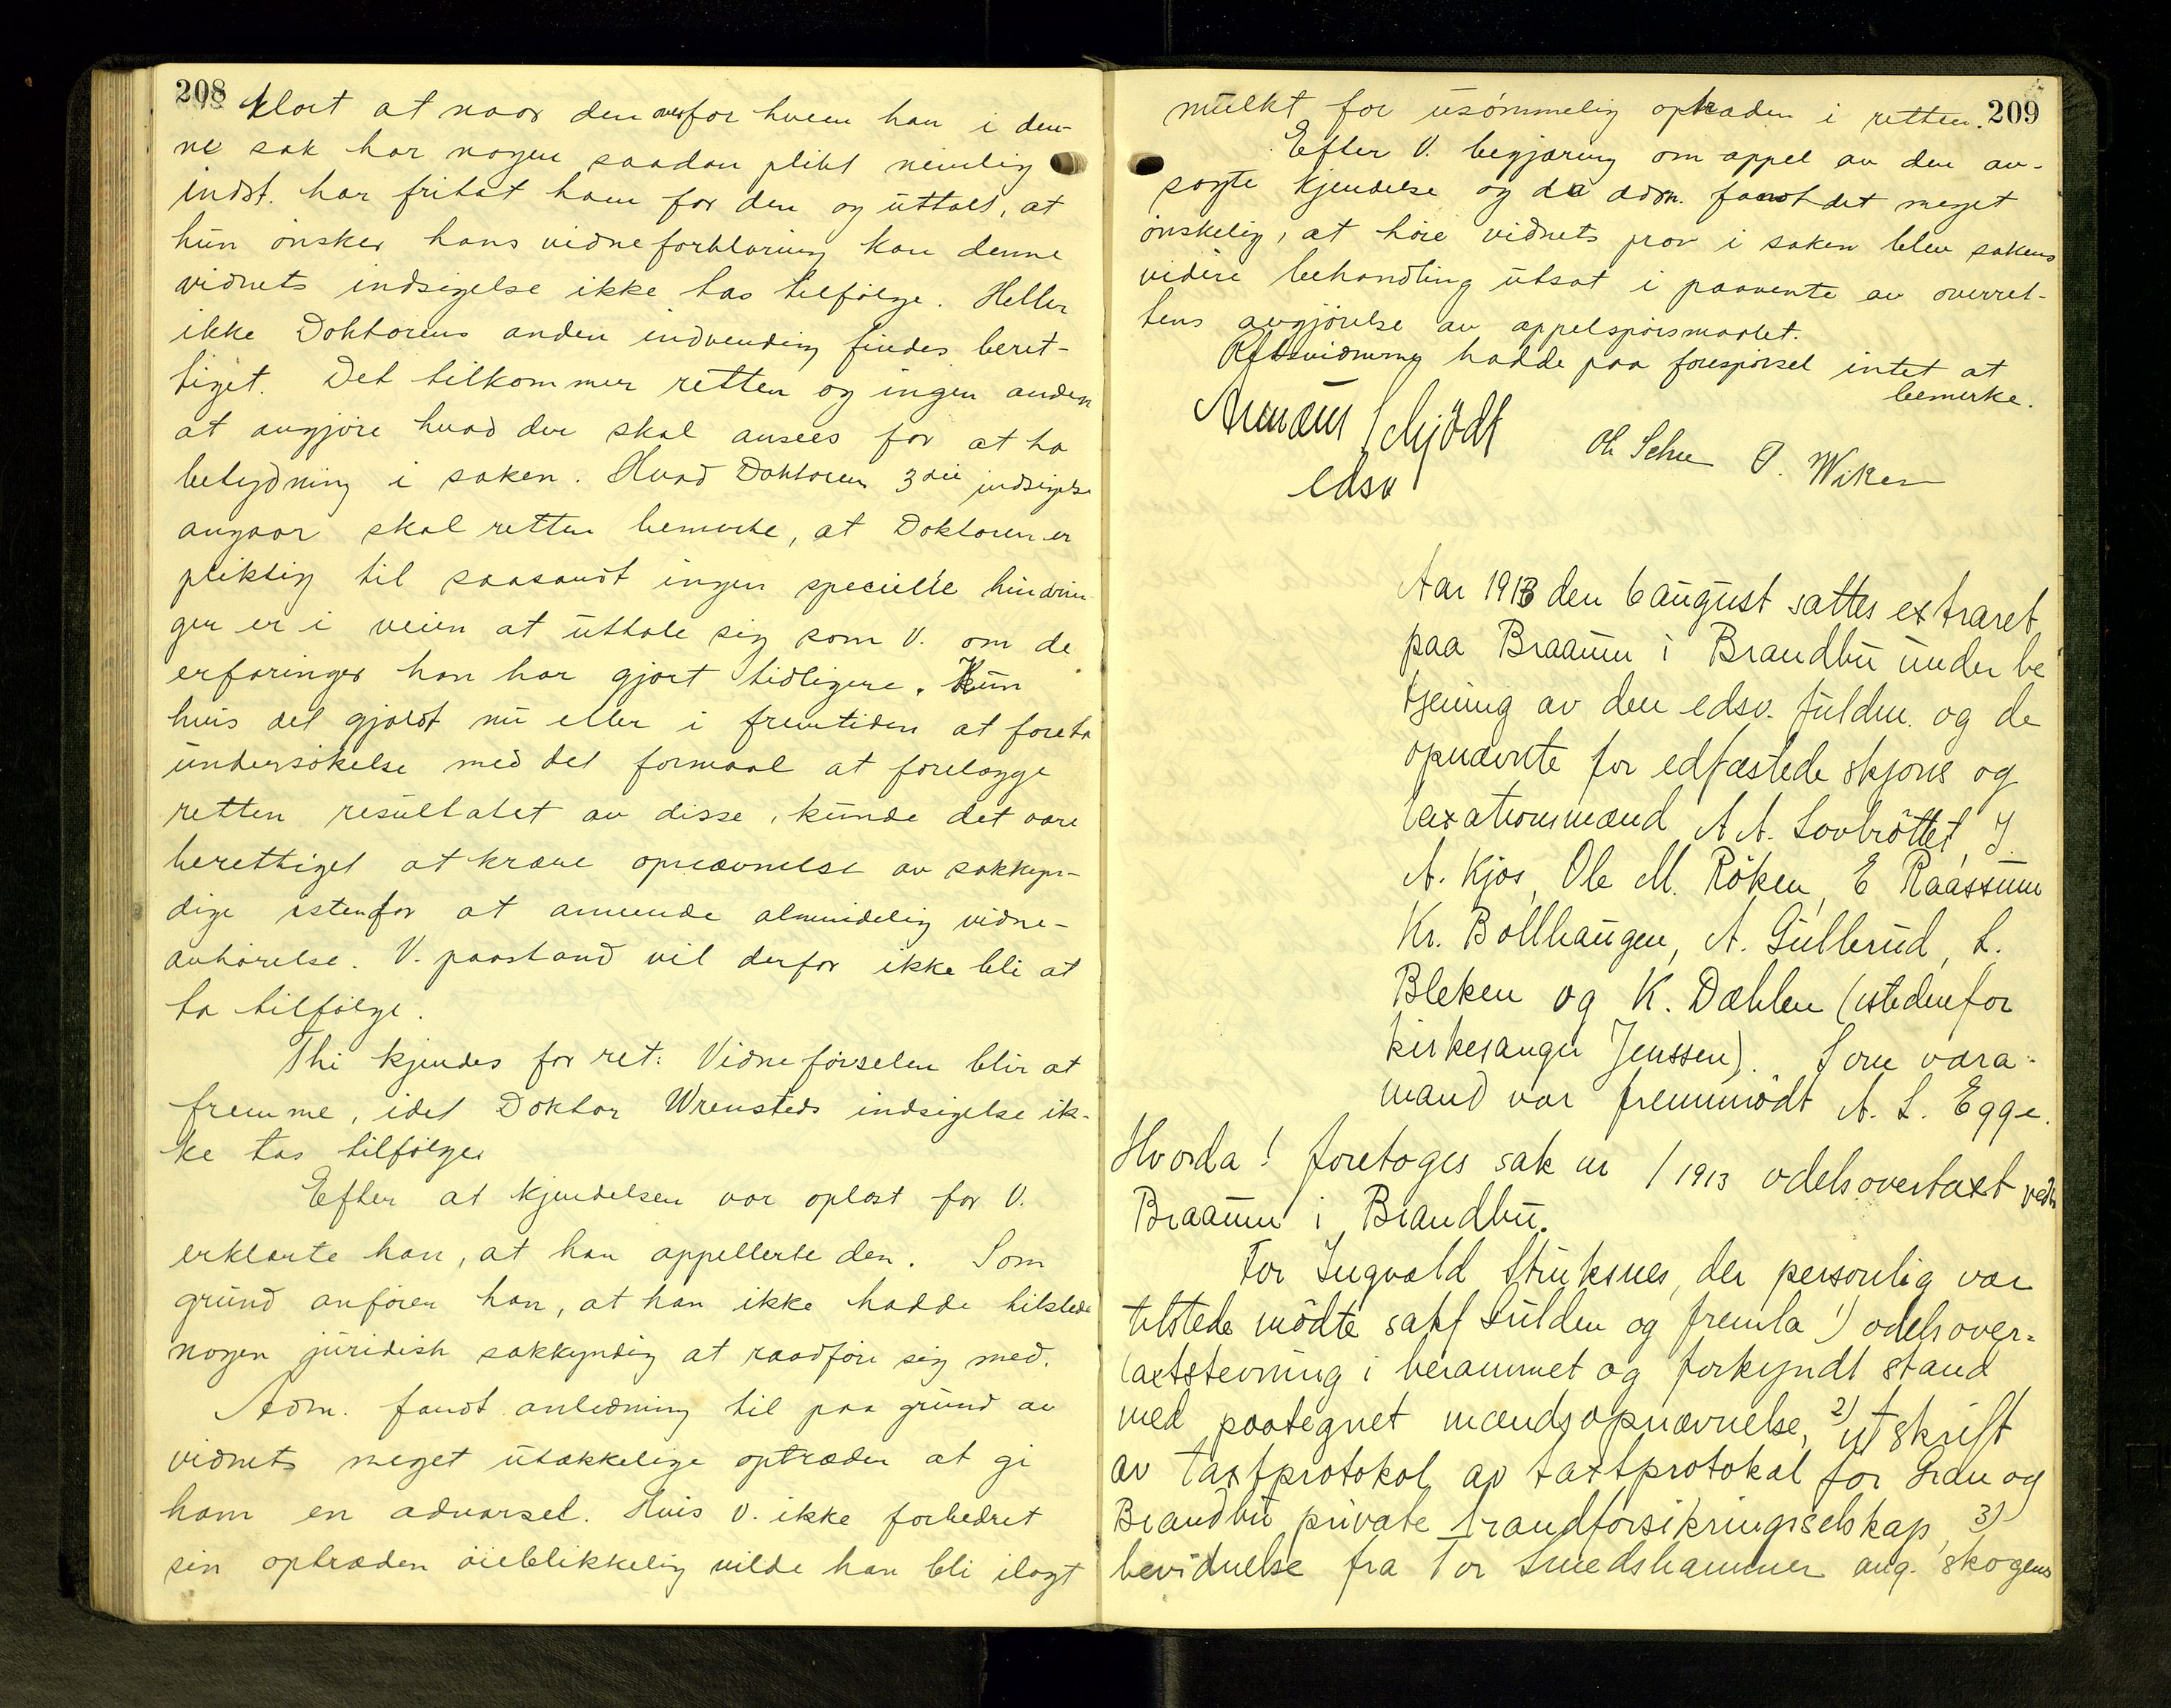 208
klart at naar den overfor hvem han i den-
ne sak har nogen saadan plikt nemlig
indst. har fritat ham for den og uttalt, at
hun ønsker hans vidneforklaring kan denne
vidnets indsigelse ikke tas tilfølge. Heller
ikke Doktorens anden indvending findes beret-
tiget. Det tilkommer retten og ingen anden
at avgjøre hvad der skal ansees for at ha
betydning i saken. Hvad Doktorens 3die indsigelse
angaar skal retten bemerke, at Doktoren er
pliktig til saasandt ingen specielle hindrin-
ger er i veien at uttale sig som V. om de
erfaringer han har gjort tidligere. Kun
hvis det gjaldt nu eller i fremtiden at foreta
undersøkelse med det formaal at forelægge
retten resultatet av disse, kunde det være
berettiget at kræve opnævnelse av sakkyn-
dige istenfor at anvende almindelig vidne-
avhørelse. V. paastand vil derfor ikke bli at
ta tilfølge.
Thi kjendes for ret: Vidneførselen blir at
fremme, idet Doktor Wrensteds indsigelse ik-
ke tas tilfølge
Efter at kjendelsen var oplæst for V.
erklærte han, at han appellerte den. Som
grund anfører han, at han ikke hadde tilstede
nogen juridisk sakkyndig at raadføre sig med.
Adm. fandt anledning til paa grund av
vidnets meget utækkelige optræden at gi
ham en advarsel. Hvis V. ikke forbedret
sin optræden øieblikkelig vilde han bli ilagt
209
mulkt for usømmelig optræden i retten.
Efter V. begjæring om appel av den av-
sagte kjendelse og da adm. fandt det meget
ønskelig, at høre vidnets prov i saken blev sakens
videre behandling utsat i paavente av overret-
tens avgjørelse av appelspørsmaalet.
Retsvidnerne hadde paa forespørsel intet at
bemerke.
Schjödt
edsv
P. Wiken
Aar 1913 den 6 august sattes extraret
paa Braaum i Brandbu under be
tjening av den edsv. fuldm. og de
opnævnte før edfæstede skjøns og
taxationsmænd A A. Lovbröttet, J.
A. Kjos, Ole M. Röken, E Raassum
Kr. Bollhaugen, A. Gullerud, L.
Bleken og K. Dæhlen (istedenfor
kirkesanger Jenssen). Som vara-
mand var fremmödt A. L. Egge.
Hvorda! foretoges sak nr /1913 odelsovertaxt vedr
Braaum i Brandbu.
For Ingvald Struksnes, der personlig var
tilstede mödte sakf Gulden og fremla 1) odelsover=
taxtstevning i berammet og forkyndt stand
med paategnet mændsopnævnelse, 2) utskrift
av taxtprotokol av taxtprotokol for Gran og
Brandbu private brandforsikringsselskap, 3)
bevidnelse fra Tor Smedshammer ang. skogens